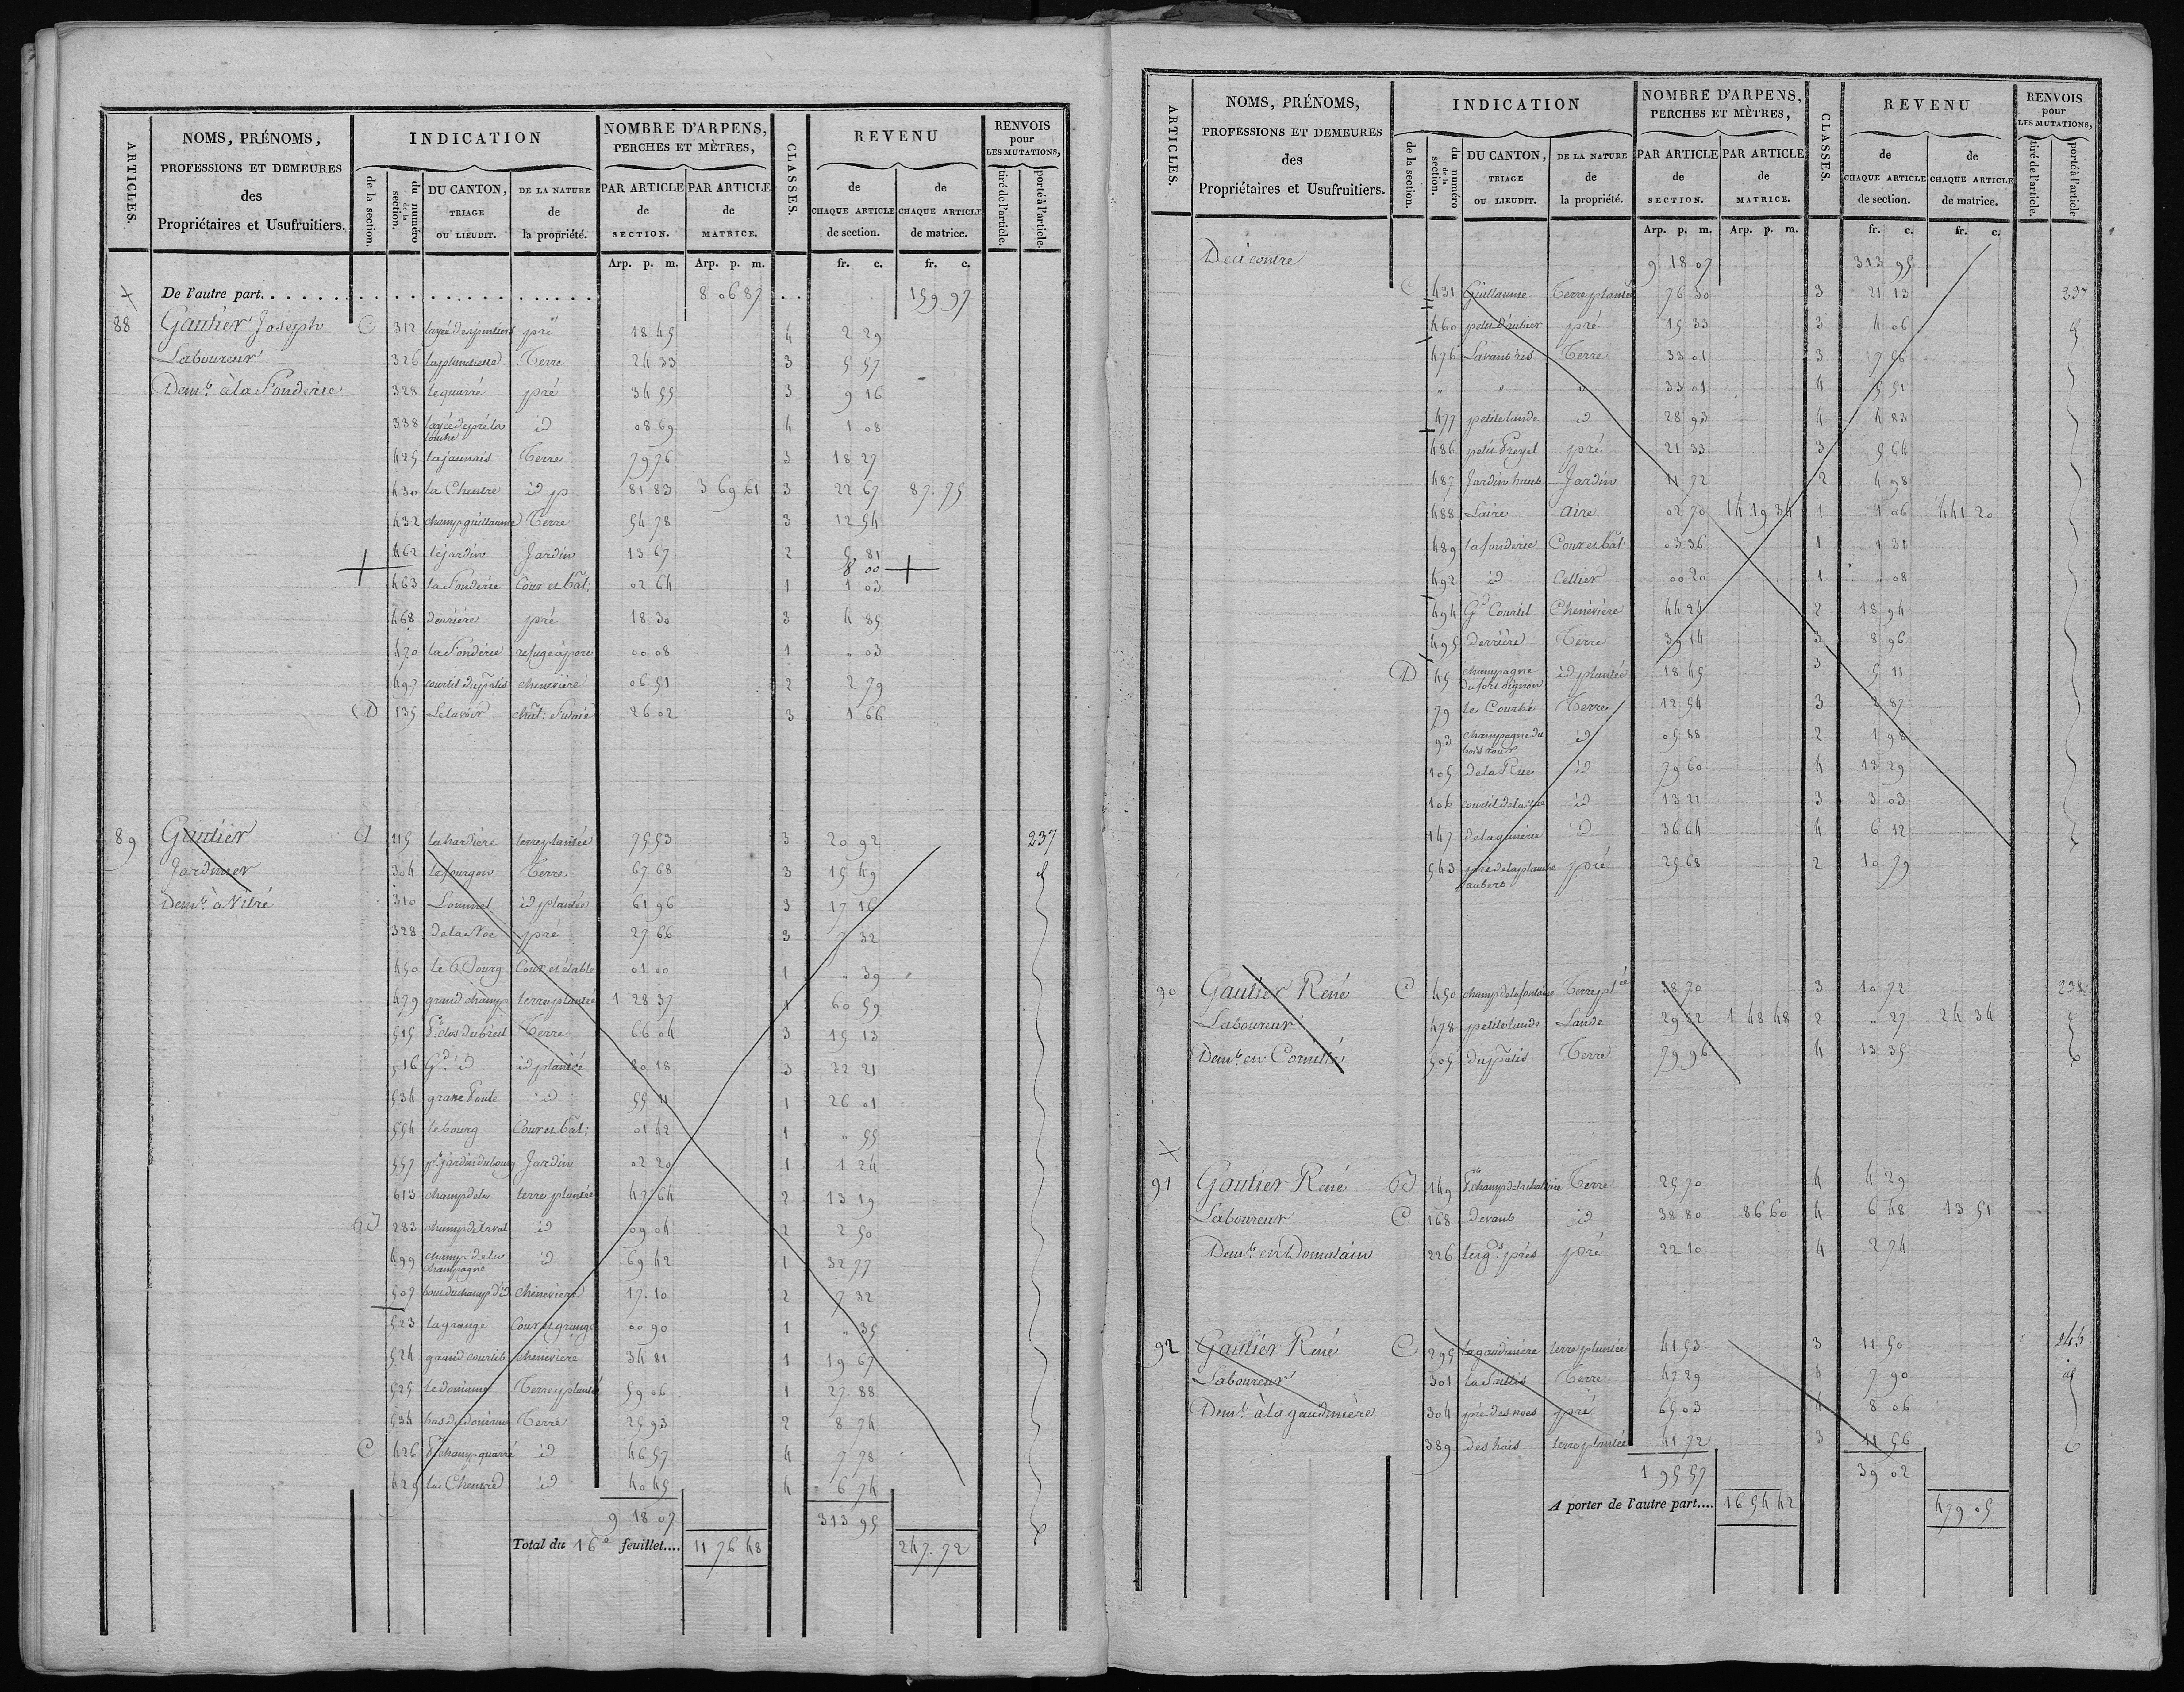 ARTICLES.
NOMS, PRÉNOMS,
PROFESSIONS ET DEMEURES
des
Propriétaires et Usufruitiers.
INDICATION
de la section.
du numéro de la section.
DU CANTON, TRIAGE OU LIEUDIT.
DE LA NATURE de la propriété.
NOMBRE D'ARPENS, PERCHES ET MÈTRES,
PAR ARTICLE de SECTION.
PAR ARTICLE de MATRICE.
CLASSES.
REVENU
de CHAQUE ARTICLE de section.
de CHAQUE ARTICLE de matrice.
RENVOIS pour LES MUTATIONS,
tiré de l'article.
porté à l'article.
Arp. p. m. Arp. p. m. fr. c. fr. c.
De l'autre part. . . . . . 8 06 87 159 97
88 Gautier Joseph C 312 pré 18 45 4 2 29
Laboureur 326 Terre 24 33 3 5 57
Demt. à la Fonderie 328 le quarré pré 34 55 3 9 16
338 id 08 69 4 1 08
425 la jaunais Terre 79 76 3 18 27
430 la Cheutre id p 81 83 3 69 61 3 22 67 87.75
432 champ guillaume Terre 54 78 3 12 54
462 le jardin Jardin 13 67 2 5 81
8 00
463 la Fonderie Cour et bât. 02 64 1 1 03
468 derrière pré 18 30 3 4 85
470 la Fonderie refuge à porcs 00 08 1 " 03
497 courtil du patis cheneviere 06 51 2 2 79
D 135 Le lavoir chât. futaie 26 02 3 1 66
89 Gautier A 115 la hardière terre plantée 75 53 3 20 92 237
Jardinier 304 le fourgon Terre 67 68 3 15 49
Demt. à Vitré 310 Lommel id plantée 61 96 3 17 16
328 de la Noë pré 27 66 3 7 32
450 le Bourg Cour et étable 01 00 1 " 39
479 grand champ terre plantée 1 28 37 1 60 59
515 Pt. clos du breil Terre 66 04 3 15 13
516 Gd. id id plantée 80 18 3 22 21
534 id 55 11 1 26 01
554 le bourg Cour et bât; 01 42 1 " 55
557 pt. jardin du bourg Jardin 02 20 1 1 24
613 champ de la terre plantée 47 64 2 13 19
B 283 champ de laval id 09 04 2 2 50
499 champ de la champagne id 69 42 1 32 77
507 bout du champ d'id chenevière 17.10 2 7 32
523 la grange Cour et grange 00 90 1 " 35
524 grand courtil cheneviere 34 81 1 19 67
525 le domaine Terre plantée 59 06 1 27.88
534 bas du domaine Terre 25 93 2 8 74
C 426 Pt. champ quarré id 46 57 4 7 78
429 la Cheutre id 40 45 4 6 74
9 18 07 313 95
Total du 16e feuillet.... 11 76 48 247.72
ARTICLES.
NOMS, PRÉNOMS,
PROFESSIONS ET DEMEURES
des
Propriétaires et Usufruitiers.
INDICATION
de la section.
du numéro de la section.
DU CANTON, TRIAGE OU LIEUDIT.
DE LA NATURE de la propriété.
NOMBRE D'ARPENS, PERCHES ET MÈTRES,
PAR ARTICLE de SECTION.
PAR ARTICLE de MATRICE.
CLASSES.
REVENU
de CHAQUE ARTICLE de section.
de CHAQUE ARTICLE de matrice.
RENVOIS pour LES MUTATIONS,
tiré de l'article.
porté à l'article
Arp. p. m. Arp. p. m. fr. c. fr. c.
De ci contre 9 18 07 313 95
C 431 Guillaume Terre plantée 76 30 3 21 13 237
460 petit d'aubier pré 15 33 3 4 06
476 Terre 33 01 3 7 56
" " " 33 01 4 5 51
477 petite lande id 28 93 4 4 83
486 pré 21 33 3 5 64
487 Jardin haut Jardin 11 72 2 4 98
488 Laire aire 02 70 14 19 34 1 1 06 441 20
489 la fonderie Cour et bât. 03 36 1 1 31
492 id Cellier 00 20 1 " 08
494 Gd. Courtil Chenevière 44 24 2 18 94
495 derrière Terre 39 14 3 8 96
D 45 id plantée 18 45 3 5 11
79 le Courbé Terre 12 54 3 2 87
93 champagne du id 05 88 2 1 98
105 de la Rue id 79 60 4 13 29
106 courtil de la rue id 13 21 3 3 03
147 id 36 64 4 6 12
543 pré 25 68 2 10 79
90 Gautier René C 450 champ de la fontaine Terre pltée 38 70 3 10 72 238
Laboureur 478 petite lande Lande 29 82 1 48 48 2 " 27 24 34
Demt. en Cornillé 505 du patis Terre 79 96 4 13 35
91 Gautier René B 149 Terre 25 70 4 4 29
Laboureur C 168 devant id 38 80 86 60 4 6 48 13 51
Demt. en Domalain 226 les gds. prés pré 22 10 4 2 74
92 Gautier René C 295 la gaudinière terre plantée 41 53 3 11 50 246
Laboureur 301 Terre 47 29 4 7 90
Demt. à la gaudinière 304 pré des noes pré 65 03 4 8 06
389 des hais terre plantée 41 72 3 11 56
1 95 57 39 02
A porter de l'autre part.... 16 54 42 479 05